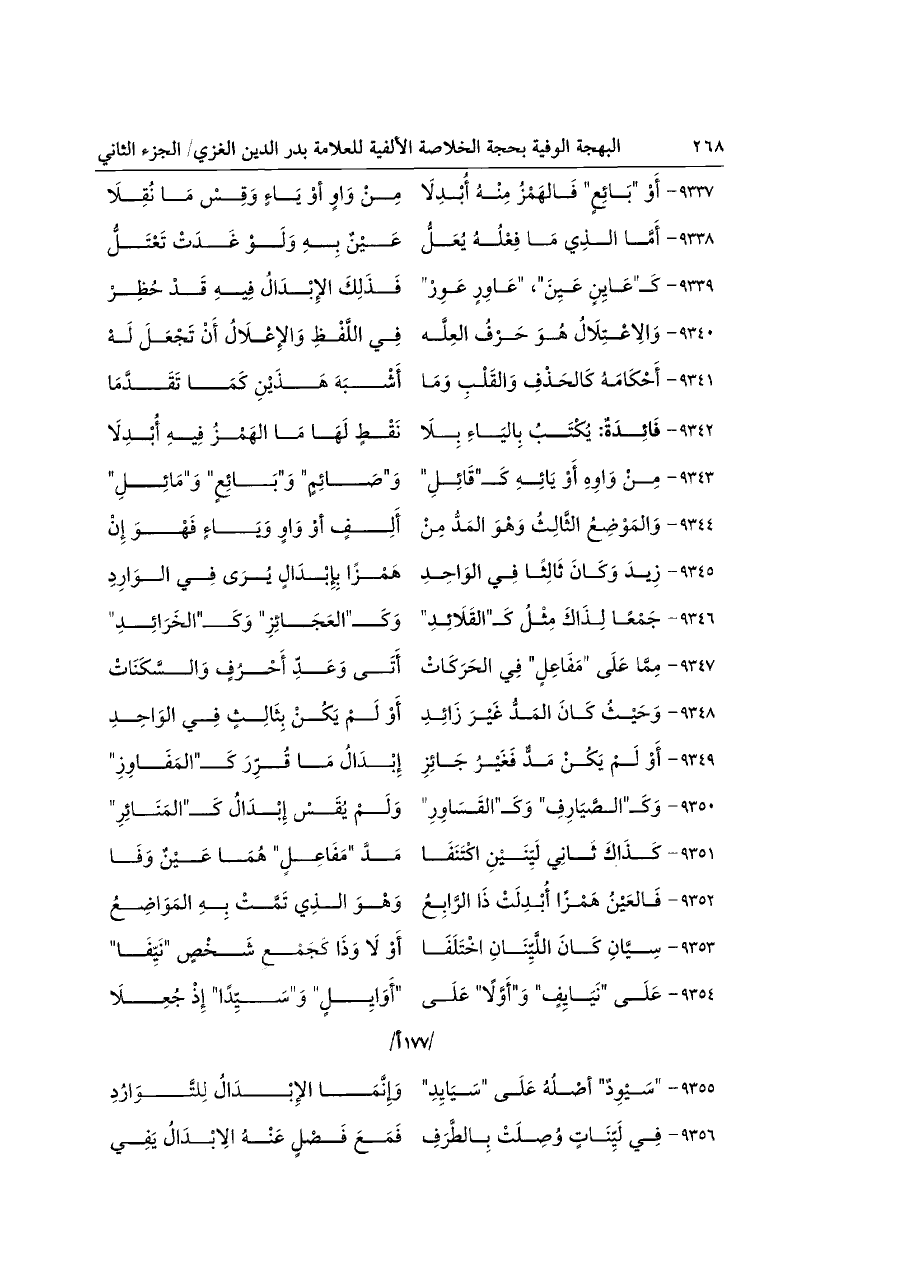 ٢٦٨ البهجة الوفية بحجة الخلاصة الألفية للعلامة بدر الدين الغزي/ الجزء الثاني
٩٣٣٧- أَوْ "بَائِعٍ" فَالهَمْزُ مِنْهُ أُبْدِلَا مِنْ وَاوٍ أوْ يَاءٍ وَقِسْ مَا نُقِلَا
٩٣٣٨- أَمَّا الذِي مَا فِعْلُهُ يُعَلُّ عَيْنٌ بِهِ وَلَوْ غَدَتْ تَعْتَلُّ
٩٣٣٩- كَـ"عَايِنٍ عَيِنَ"، "عَاوِرٍ عَوِرْ" فَذَلِكَ الإِبْدَالُ فِيهِ قَدْ حُظِرْ
٩٣٤٠- وَالِاعْتِلَالُ هُوَ حَرْفُ العِلَّه فِي اللَّفْظِ وَالإِعْلَالُ أَنْ تَجْعَلَ لَهْ
٩٣٤١- أَحْكَامَهُ كَالحَذْفِ وَالقَلْبِ وَمَا أَشْبَهَ هَذَيْنِ كَمَا تَقَدَّمَا
٩٣٤٢- فَائِدَةٌ: يُكْتَبُ بِاليَاءِ بِلَا نَقْطٍ لَهَا مَا الهَمْزُ فِيهِ أُبْدِلَا
٩٣٤٣- مِنْ وَاوِهِ أَوْ يَائِهِ كَـ"قَائِلِ" وَ"صَائِمٍ" وَ"بَائِعٍ" وَ"مَائِلِ"
٩٣٤٤- وَالمَوْضِعُ الثَّالِثُ وَهْوَ المَدُّ مِنْ أَلِفٍ أوْ وَاوٍ وَيَاءٍ فَهْوَ إِنْ
٩٣٤٥- زِيدَ وَكَانَ ثَالِثًا فِي الوَاحِدِ هَمْزًا بِإِبْدَالٍ يُرَى فِي الوَارِدِ
٩٣٤٦- جَمْعًا لِذَاكَ مِثْلُ كَـ"القَلَائِدِ" وَكَـ"العَجَائِزِ" وَكَـ"الخَرَائِدِ"
٩٣٤٧- مِمَّا عَلَى "مَفَاعِلٍ" فِي الحَرَكَاتْ أَتَى وَعَدِّ أَحْرُفٍ وَالسَّكَنَاتْ
٩٣٤٨- وَحَيْثُ كَانَ المَدُّ غَيْرَ زَائِدِ أَوْ لَمْ يَكُنْ بِثَالِثٍ فِي الوَاحِدِ
٩٣٤٩- أَوْ لَمْ يَكُنْ مَدٌّ فَغَيْرُ جَائِزِ إِبْدَالُ مَا قُرِّرَ كَـ"المَفَاوِزِ"
٩٣٥٠- وَكَـ"الصَّيَارِفِ" وَكَـ"القَسَاوِرِ" وَلَمْ يُقَسْ إِبْدَالُ كَـ"المَنَائِرِ"
٩٣٥١- كَذَاكَ ثَانِي لَيِّنَيْنِ اكْتَنَفَا مَدَّ "مَفَاعِلٍ" هُمَا عَيْنٌ وَفَا
٩٣٥٢- فَالعَيْنُ هَمْزًا أُبْدِلَتْ ذَا الرَّابِعُ وَهْوَ الذِي تَمَّتْ بِهِ المَوَاضِعُ
٩٣٥٣- سِيَّانِ كَانَ اللَّيِّنَانِ اخْتَلَفَا أَوْ لَا وَذَا كَجَمْعِ شَخْصٍ "نَيِّفَا"
٩٣٥٤- عَلَى "نَيَايِفٍ" وَ"أَوَّلًا" عَلَى "أَوَايِلٍ" وَ"سَيِّدًا" إِذْ جُعِلَا
/١٧٧أ/
٩٣٥٥- "سَيْوِدٌ" أَصْلُهُ عَلَى "سَيَايِدِ" وَإِنَّمَا الإِبْدَالُ لِلتَّوَارُدِ
٩٣٥٦- فِي لَيِّنَاتٍ وُصِلَتْ بِالطَّرَفِ فَمَعَ فَصْلٍ عَنْهُ الِابْدَالُ يَفِي